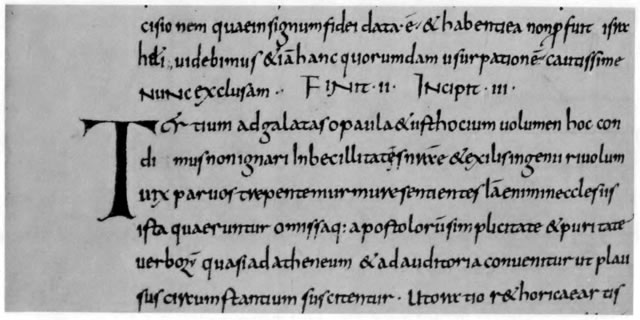 cisio nem quae in signum fidei data ē & habentiea non ꝓfuit isra
heli uidebimus & iā hanc quorumdam usurpationē cautissime
nunc exclusam · FINIT · II · INCIPIT · III ·
Tertium ad galatas o paula & usthocium uolumen hoc con
di mus non ignari Inbecillitatēs nræ & exilis ingenii riuolum
uix paruos trepente murmure sentientes Iā enim in ecclesiis
ista quaeruntur omissaq: apostolorū simplicitate & puritate
uerborꝝ quasi ad atheneum & ad auditoria conuenitur ut plau
sus circum stantium suscitentur · Utoratio r&horicae artis